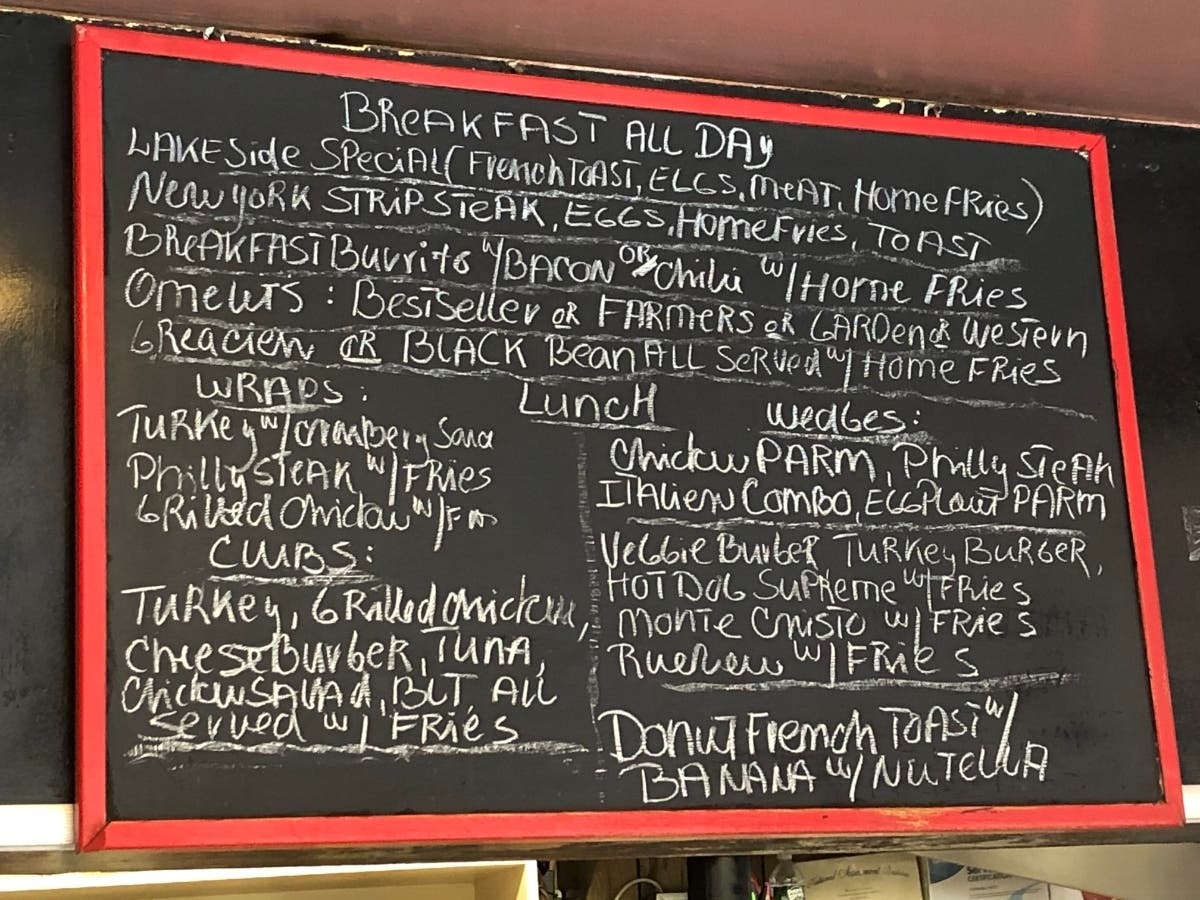 BREAKFAST ALL DAY
LAKESide SPeCiAL (FrenchTOAST, EGGS, MeAT, Home FRies)
New yORK STRiPSTeAK, EGGS, HomeFries, TOAST
BReAKFAST Burrito w/BACON OR Chili w/ Home FRies
Omelets : BestSeller oR FARMERS oR GARDen oR Western
GReacien OR BLACK Bean ALL SeRVed w/ Home FRies
WRAPS:
LuncH
Wedges:
TuRKey w/ Cranbery Sauce
PhillySTeAK w/ FRies
GRilled Chicken w/ Fries
CLUBS:
TuRKey, GRilled Chicken,
CheeseBurgeR, TUNA,
Chicken SALAd, BLT, ALL
Served w/ FRies
Chicken PARM, Philly STeAK
ITAlien Combo, EGGPlant PARM
VeGGie BurGeR TURKey BURGeR,
HOT DOG SuPReme w/ FRies
Monte Cristo w/ FRieS
Rueben w/ FRieS
DonuT French TOAST w/
BANANA w/ NUTELLA